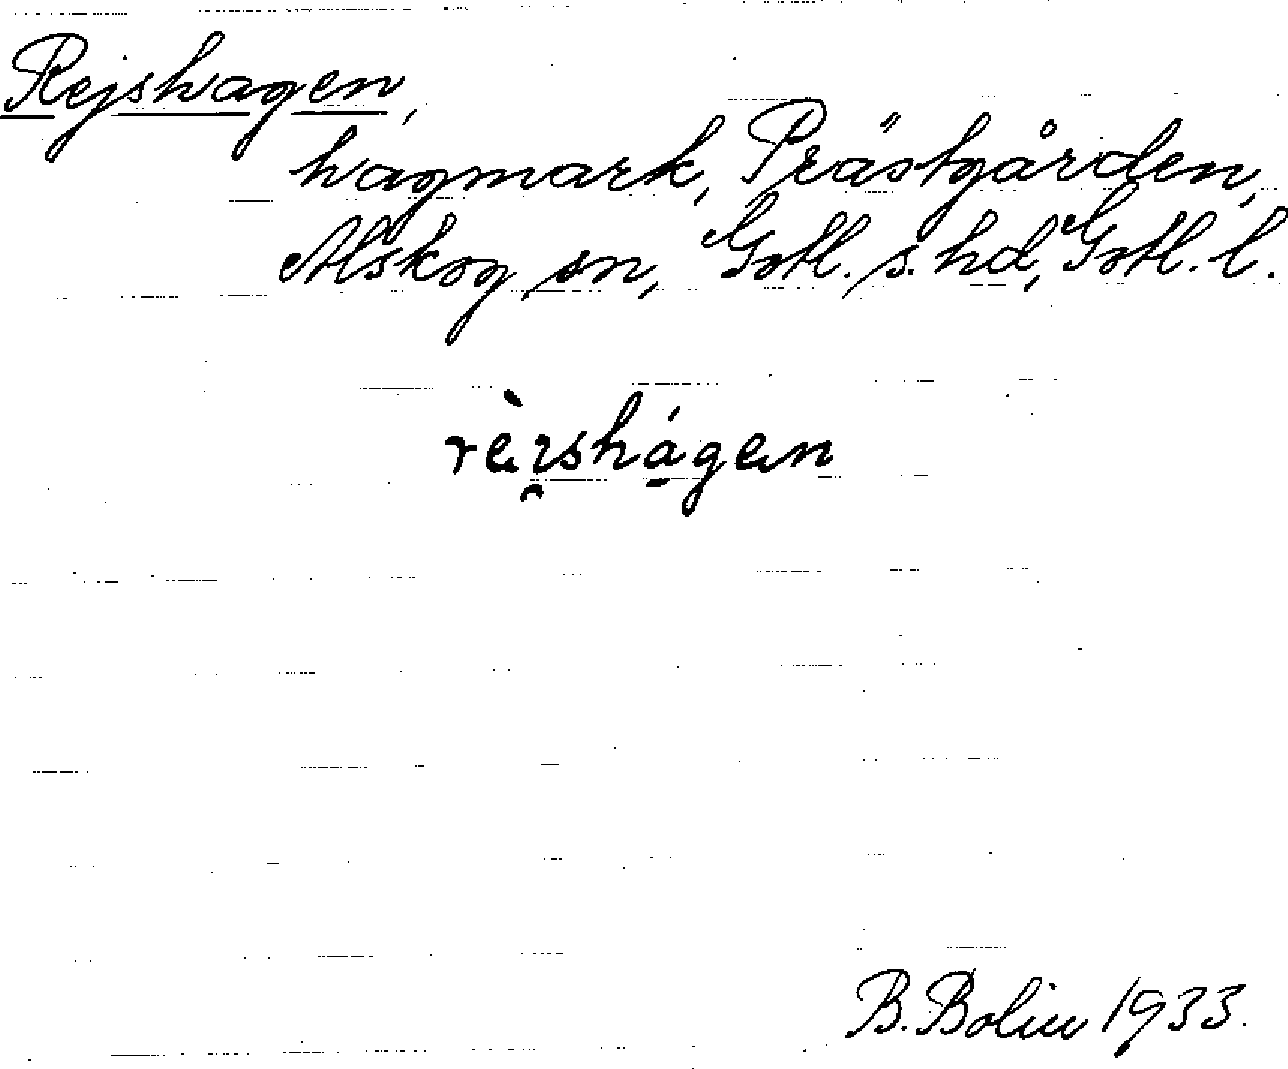 Rejshagen,
hagmark, Prästgården,
Alskog sn, Gotl. s. hd, Gotl. l.
rèi̯shágen
B. Bolin 1933.